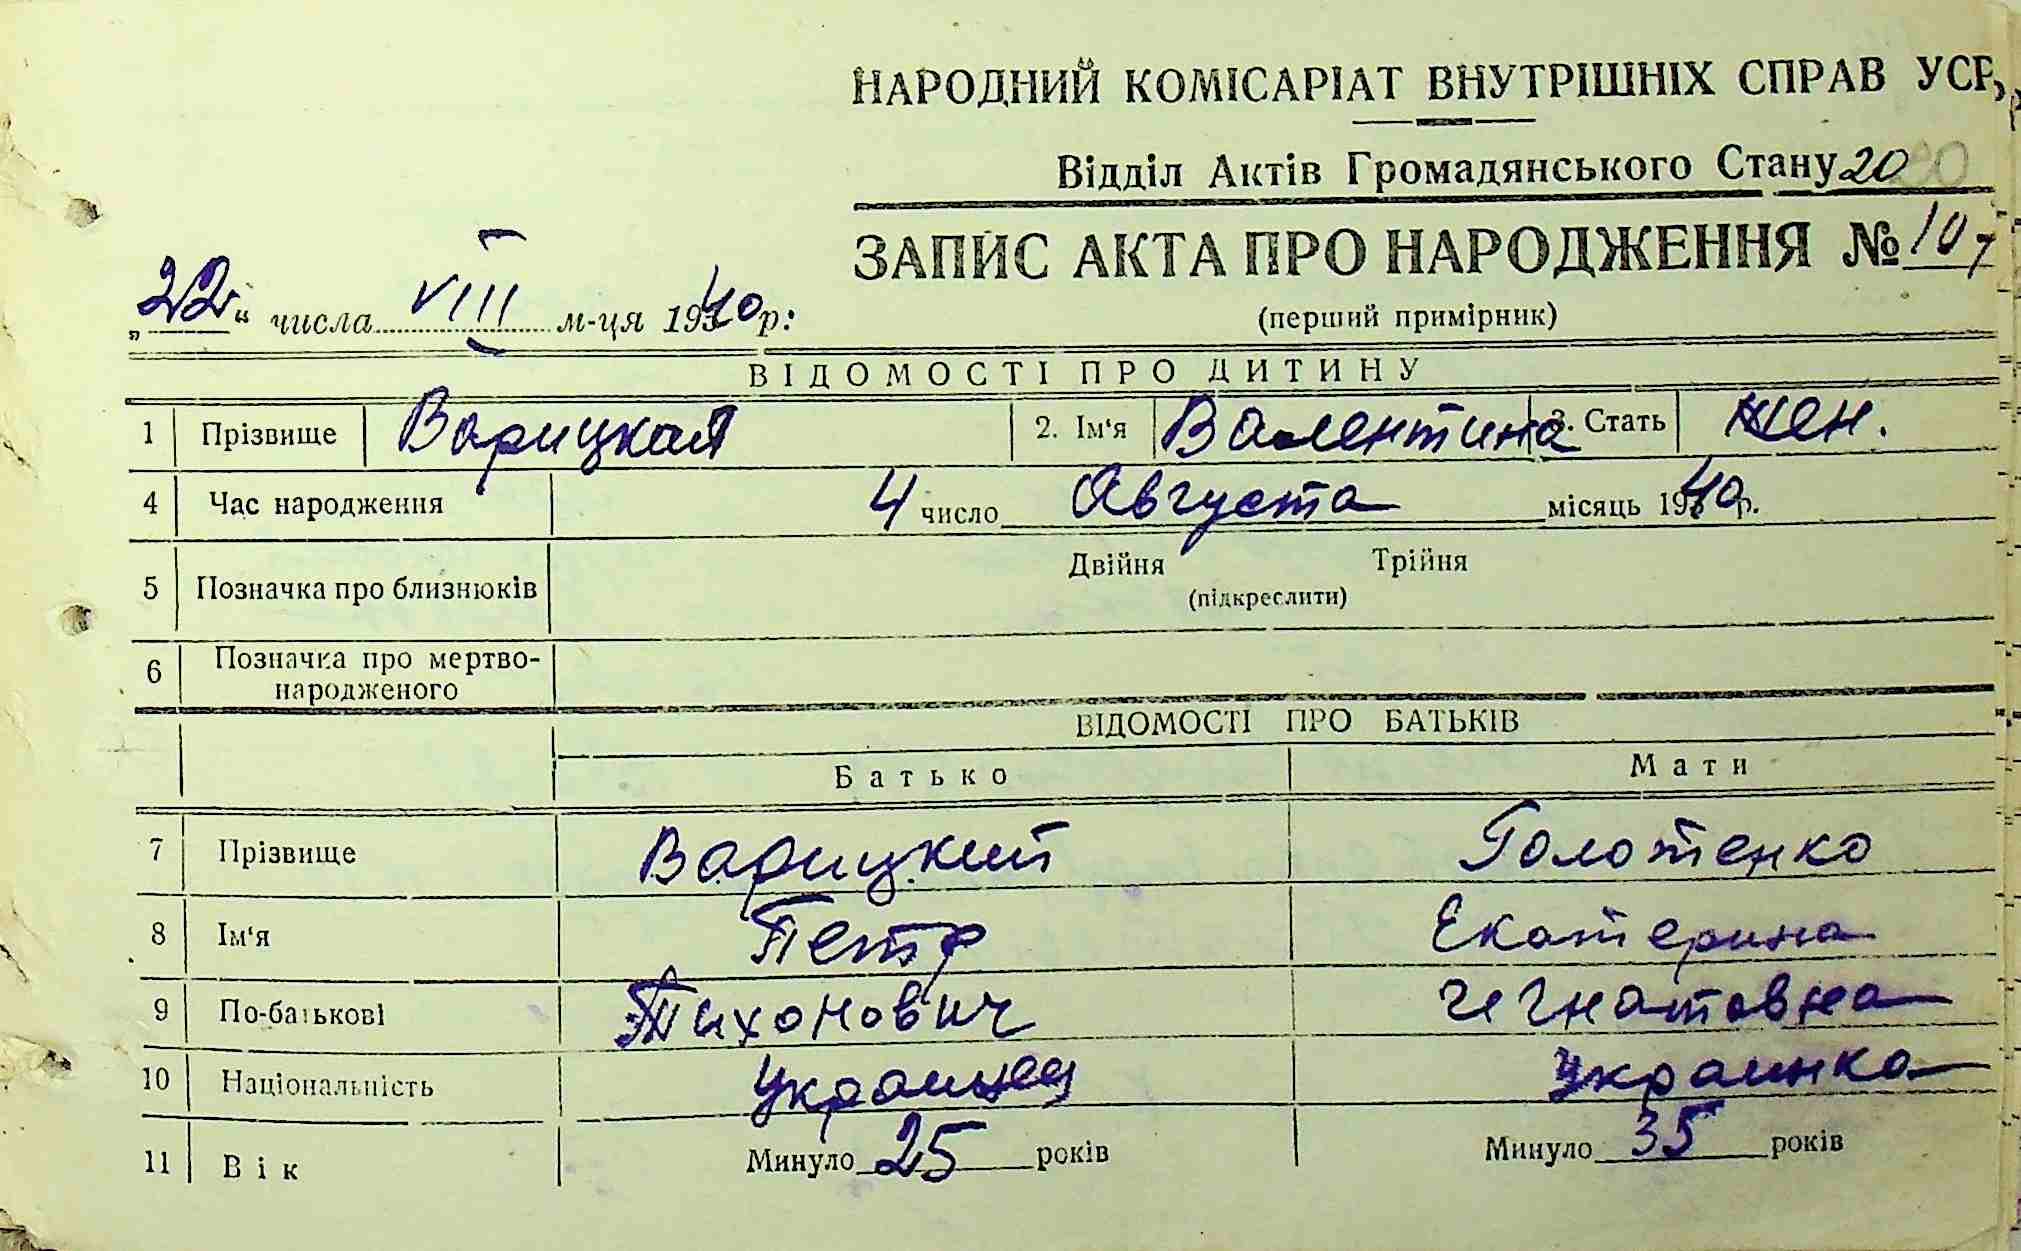 НАРОДНИЙ КОМІСАРІАТ ВНУТРІШНІХ СПРАВ УСР
Відділ Актів Громадянського Стану 20
ЗАПИС АКТА ПРО НАРОДЖЕННЯ № 107
„22“ числа VIII м-ця 1940 р.:
(перший примірник)
ВІДОМОСТІ ПРО ДИТИНУ
1 Прізвище Варицкая 2. Ім‘я Валентина 3. Стать жен.
4 Час народження 4 число Августа місяць 1940 р.
5 Позначка про близнюків Двійня Трійня
(підкреслити)
6 Позначка про мертво-
народженого
ВІДОМОСТІ ПРО БАТЬКІВ
Батько Мати
7 Прізвище Варицкий Голотенко
8 Ім‘я Петр Екатерина
9 По-батькові Тихонович Игнатовна
10 Національність Украинец Украинка
11 Вік Минуло 25 років Минуло 35 років